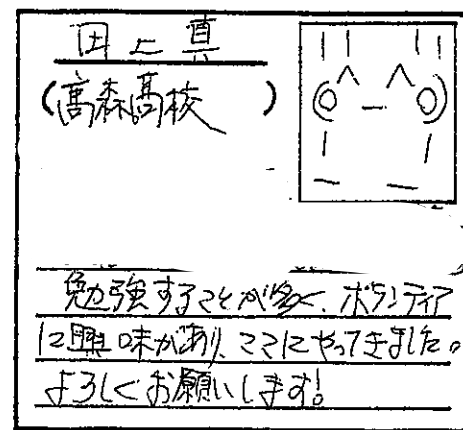 田上真
(高森高校)
勉強することが多く、ボランティア
に興味があり、ココにやってきました。
よろしくお願いします!